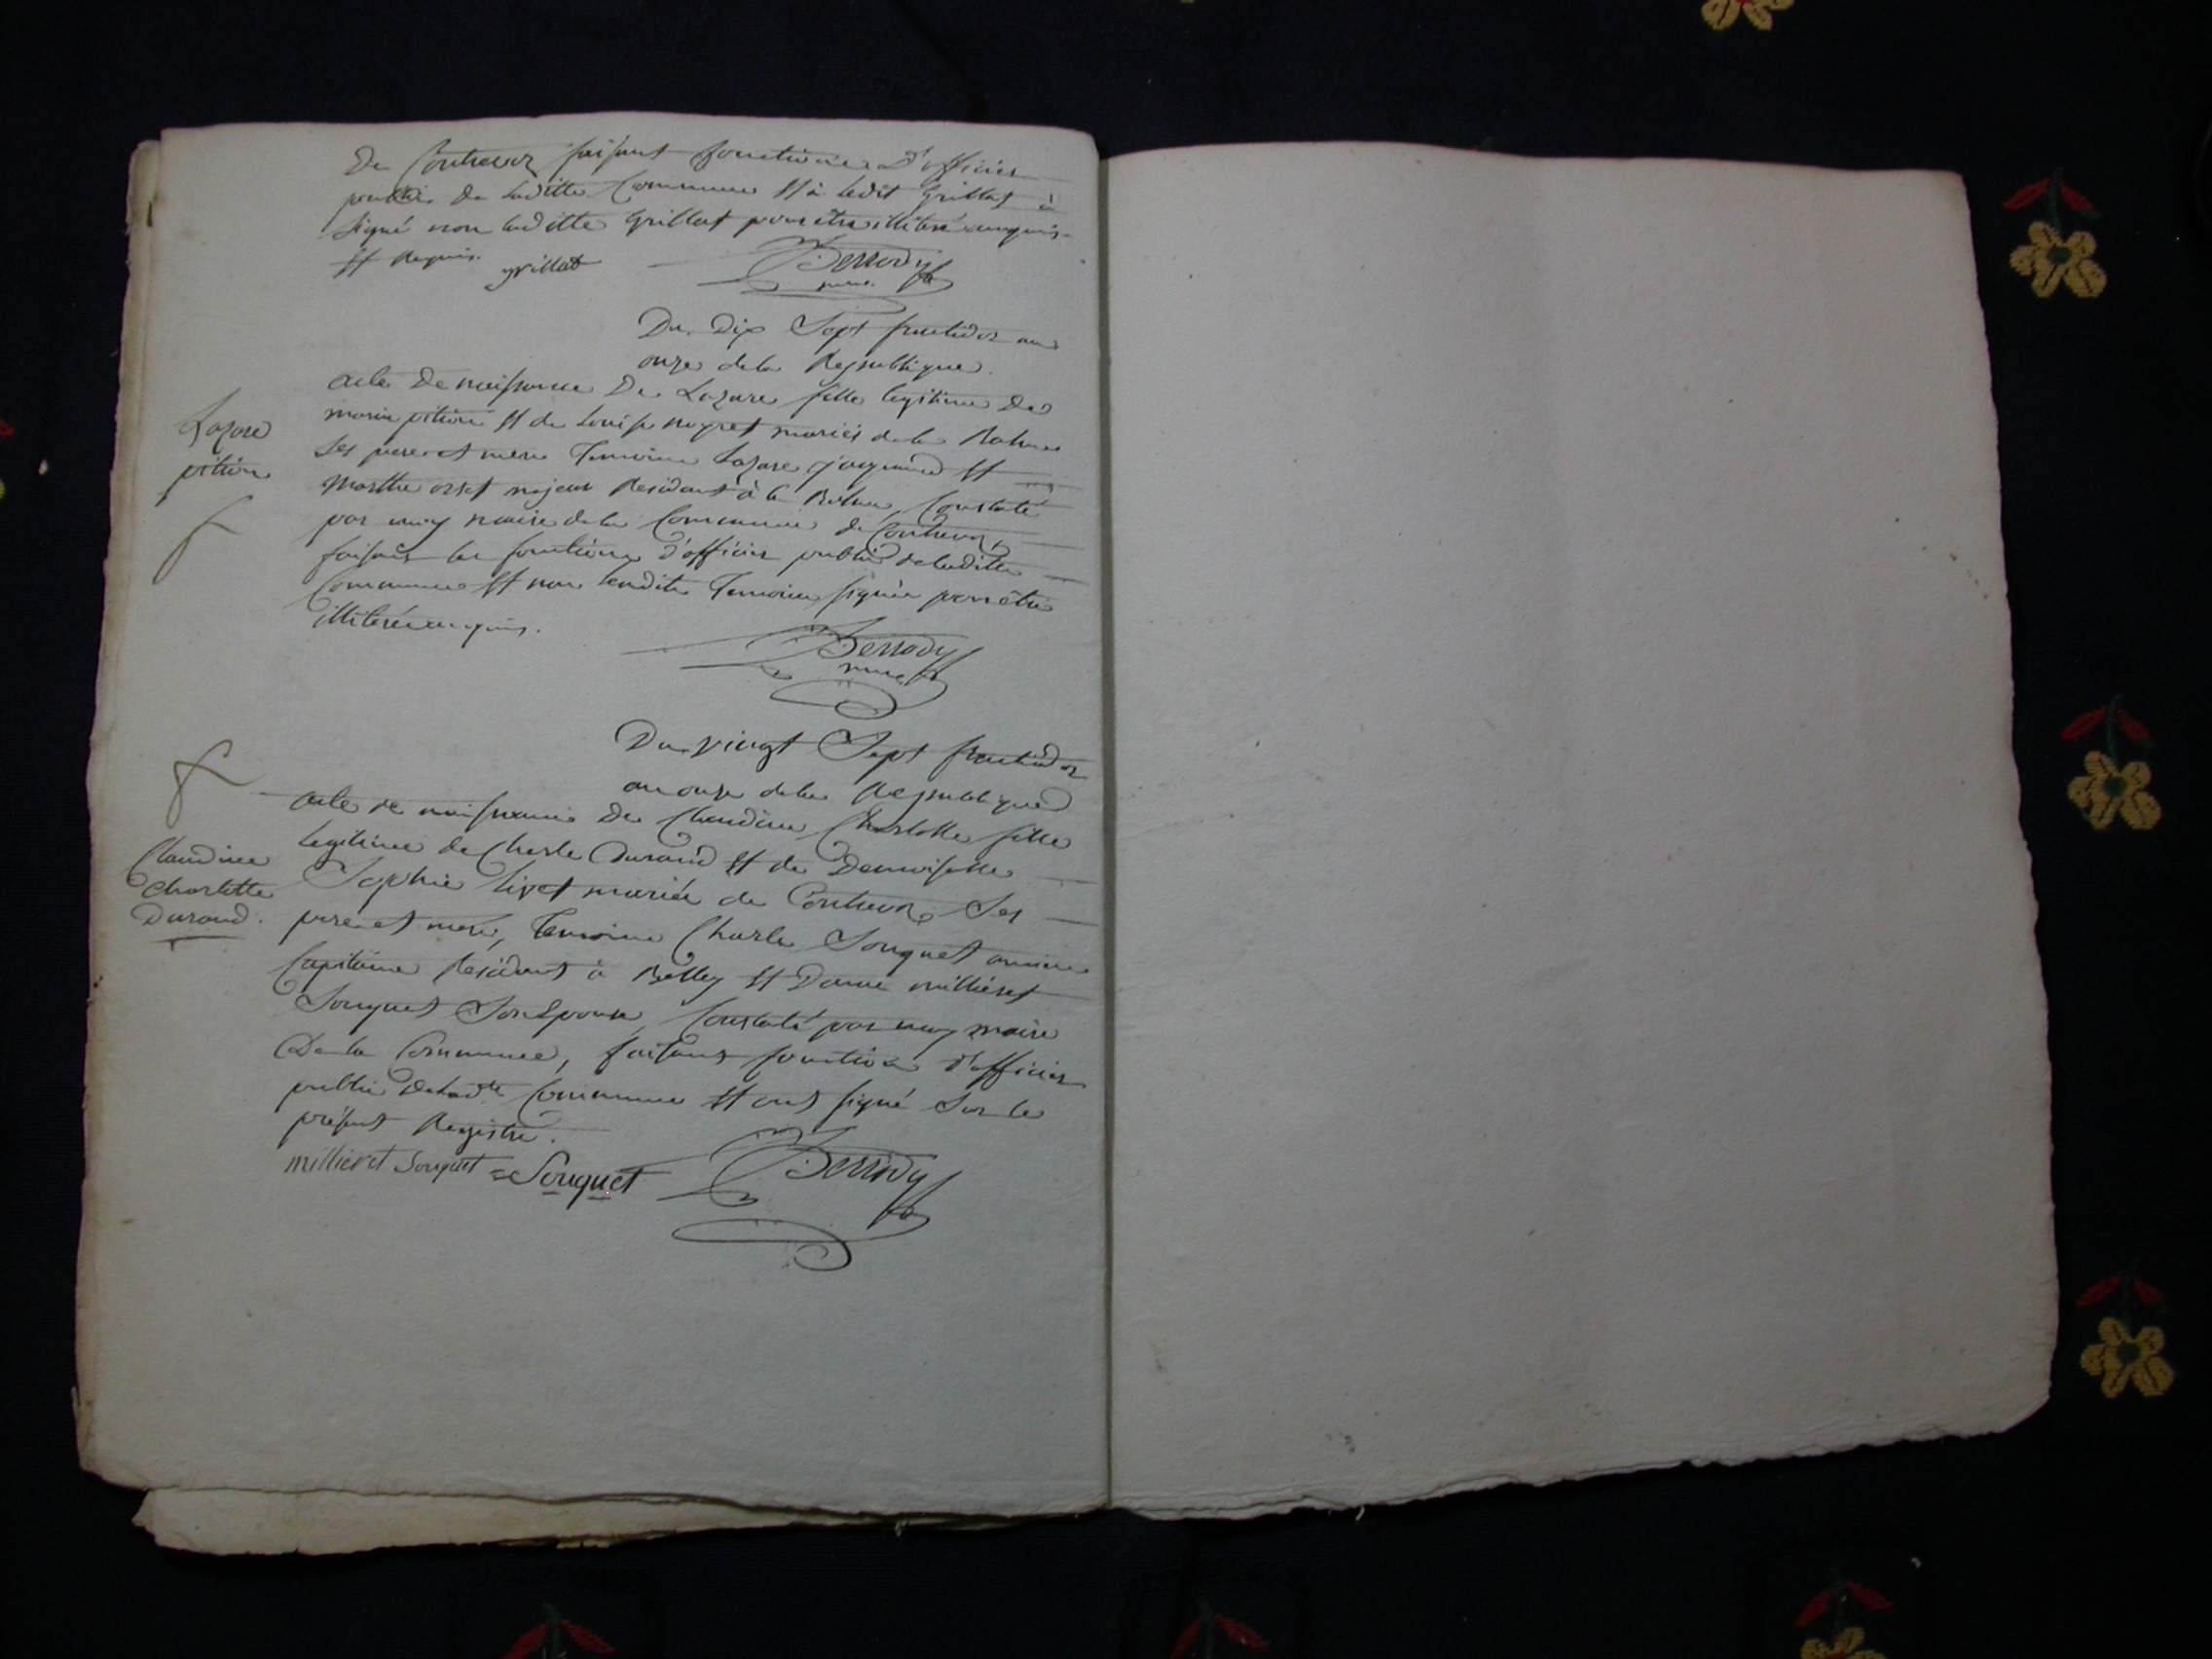 De Contrevoz faisant fonctions d'officier
public de laditte Commune Et à ledit Grillat
signé non laditte Grillat pour être illiteré enquis
Et Requis.
grillat
Berrody
maire
Du Dix Sept fructidor an
onze de la Republique.
Lazare
pition
acte de naissance De Lazare fille legitime De
pition Et de Louise mariés de la
Ses pere et mere Temoins Lazare Et
Marthe orset majeur Residant à la
Constaté
par moy maire de la Commune de Contrevoz,
faisant les fonctions d'officier public de laditte
Commune Et non lesdits Temoins signés pour être
illiteré enquis.
Berrody
maire
Du vingt Sept fructidor
an onze de la Republique
Claudine
Charlotte
Durand.
acte de naissance De Claudine Charlotte fille
legitime de Charle Durand Et de Demoiselle
Sophie livet mariés de Contrevoz Ses
pere et mere, Temoins Charle Souquet ancien
Capitaine Residant à Belley Et Dame millieret
Souquet Son Epouse, Constaté par moy maire
De la Commune, faisant fonction d'officier
public de ladte Commune Et ont signé Sur le
présent Registre.
millieret Souquet
Souquet
Berrody